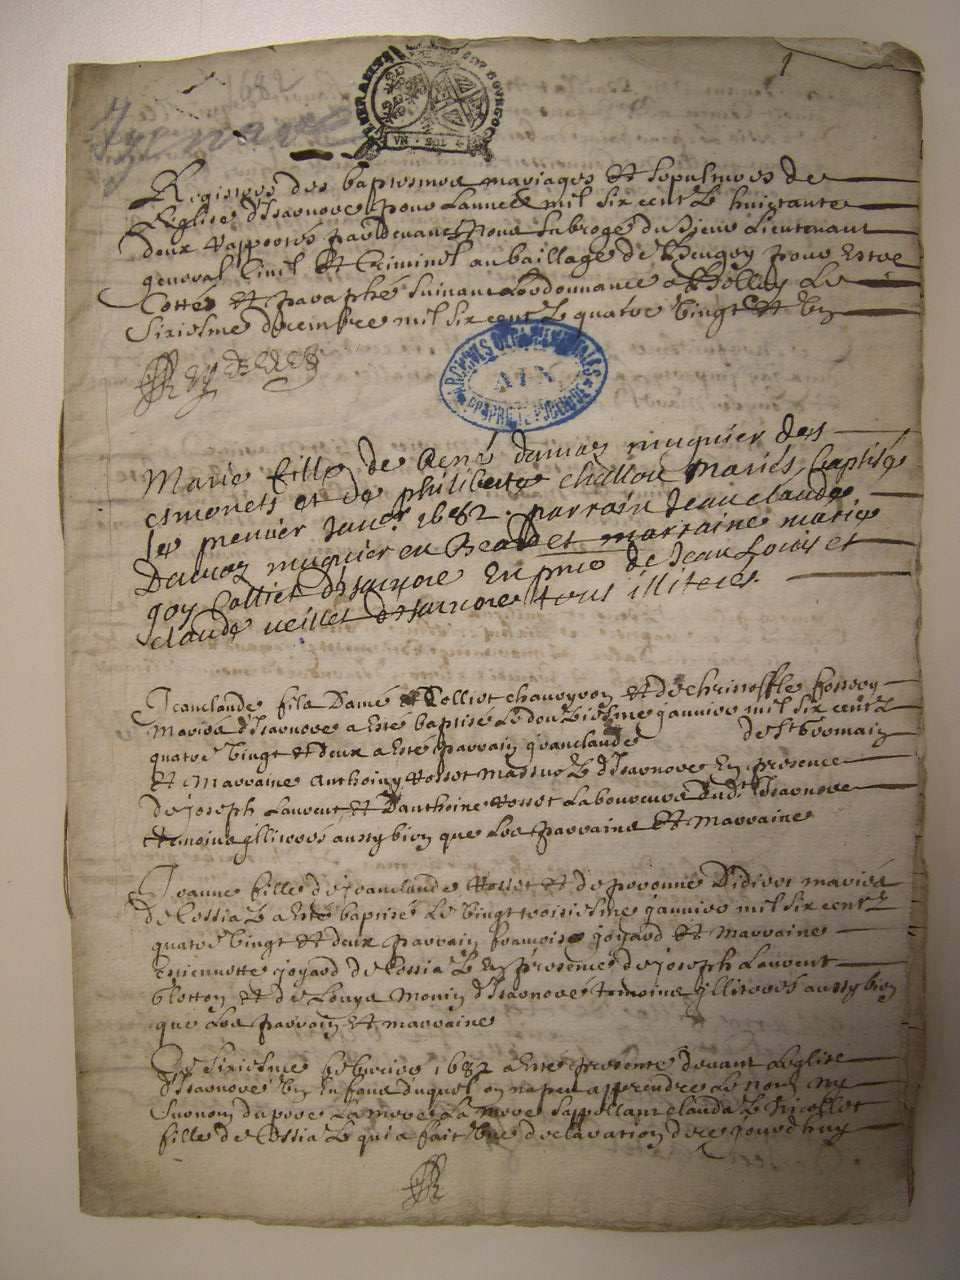 1
1682
Izernore
GENERALITE BOVRGOG
VN · SOL
Registres des baptesmes mariages et sepultures de
l'Eglise d'Isarnore pour l'annee mil six cent huictante
deux rapportés pardevant nous du Sieur Lieutenant
general Civil et Criminel au bailliage de Beugey pour estre
Cottés et paraphé suivant l'ordonnance a Belley le
Sixiesme decembre mil six cent quatre vingt et un
ARCHIVES DEPARTEMENTALES
AIN
PROPRIETE PUBLIQUE
Marie fille de René damaz muguier des
esmonets et de philiberte challon mariés, baptisée
le premier Janer 1682. parrain Jean claude
Damaz muguier en Beard et marraine marie
goy Colliet d'Isarnore En pnce de Jean Louis et
claude veillet d'Isarnore tous illiteres
Jeanclaude fils Damé Colliet et de christoffle
Mariés d'Isarnore a esté baptisé le douziesme janvier mil six cent
quatre vingt et deux a esté parrain jeanclaude de St Germain
et Marraine Anthoiny Rosset d'Isarnore En presence
de joseph Laurent et d'anthoine Rosset Laboureurs dudt Isarnore
temoins illiterés aussy bien que les parrains et Marraine
Jeanne fille de jeanclaude Rosset et de peronne Didier mariés
de Cessia a esté baptisé le vingt troisiesme janvier mil six cent
quatre vingt et deux parrain francois joyard et Marraine
Estiennette joyard de Cessia En presence de joseph Laurent
et de Louys Monin d'Isarnore temoins illiterés aussy bien
que les parrain et marraine
Le sixiesme febvrier 1682 a esté presenté devant l'eglise
d'Isarnore un Enfant duquel on na peu apprendre le nom ny
Surnom du pere La mere sappellant clauda
fille de Cessia qui a fait une declaration de ce jourdhuy